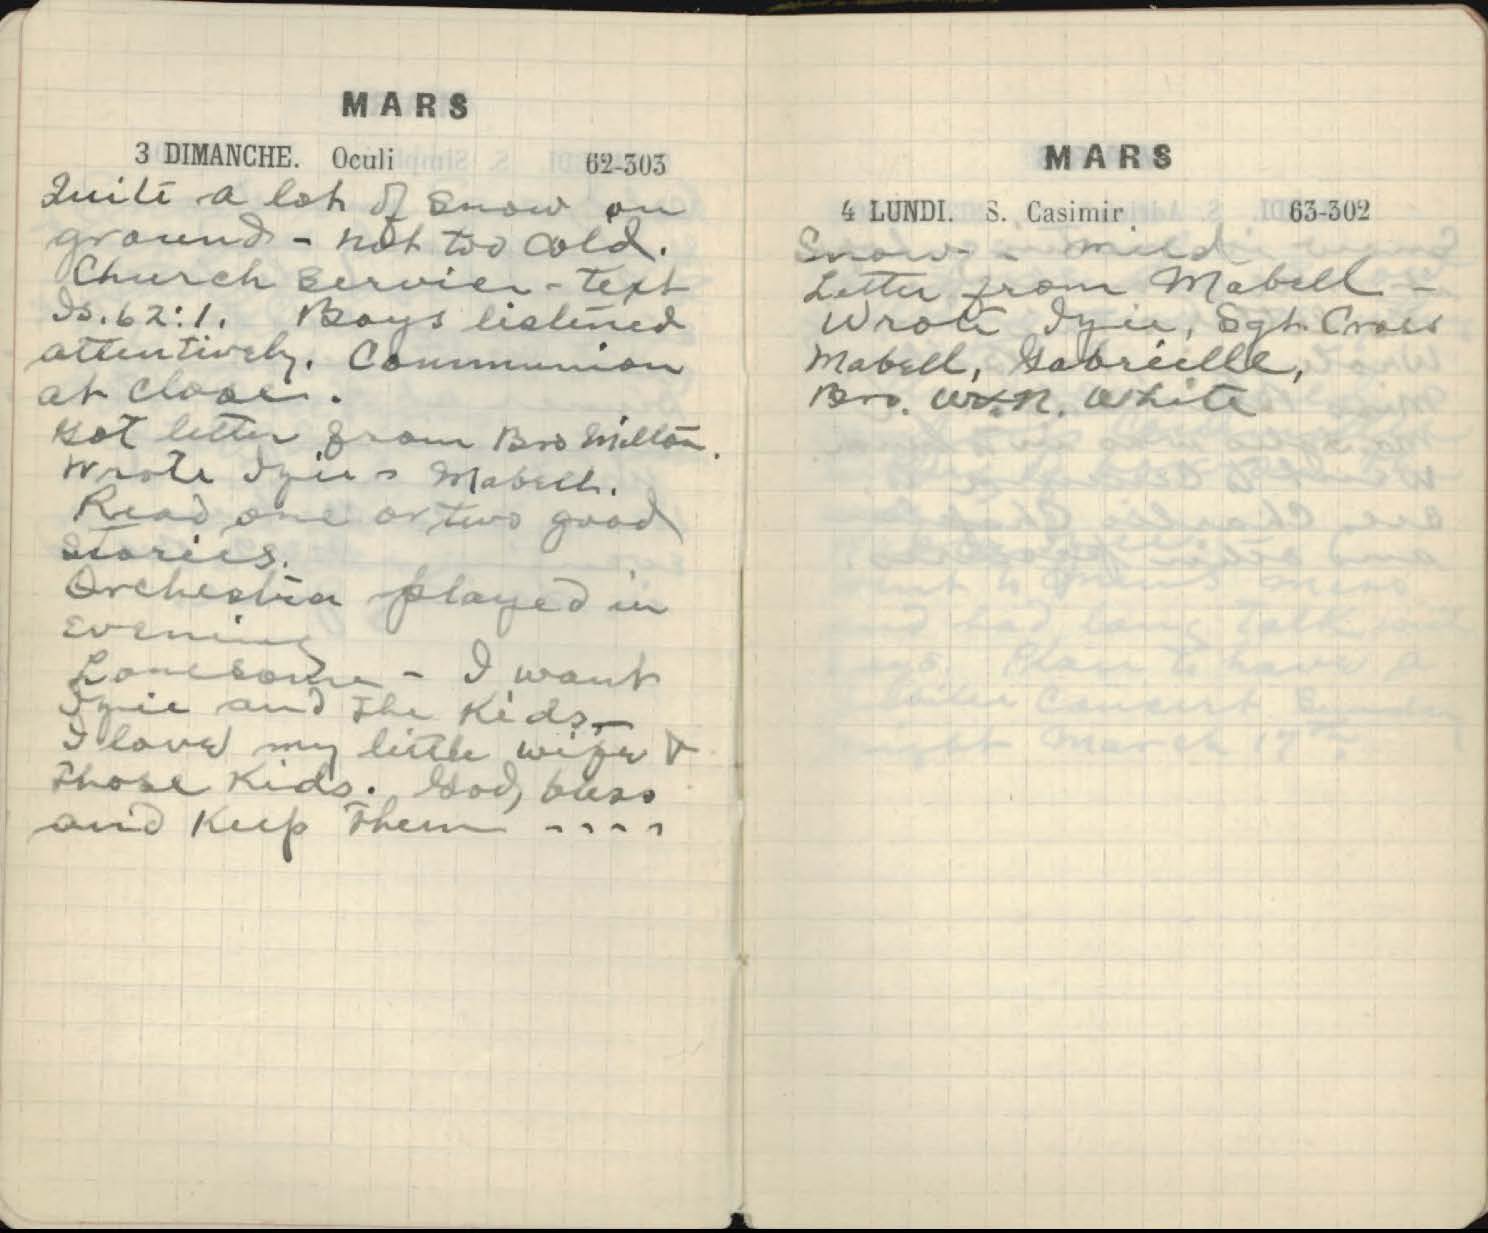 MARS
3 DIMANCHE. Oculi 62-303
Quite a lot of snow on
ground - not too cold.
Church service - text
Is. 62:1. Boys listened
attentively. Communion
at close.
Got letter from Bro Milton.
Wrote Izie & Mabell.
Read one or two good
stories.
Orchestra played in
evening
Lonesome - I want
Izie and the Kids -
I love my little wife &
those Kids. God, bless
and Keep them - - - -
MARS
4 LUNDI. S. Casimir 63-302
Snow - mild
Letter from Mabell -
Wrote Izie, Sgt. Cross
Mabell, Gabrielle,
Bro. W.N. White
went to men's mess
and had long talk with
boys. Plan to have a
concert Sunday
night March 17th.